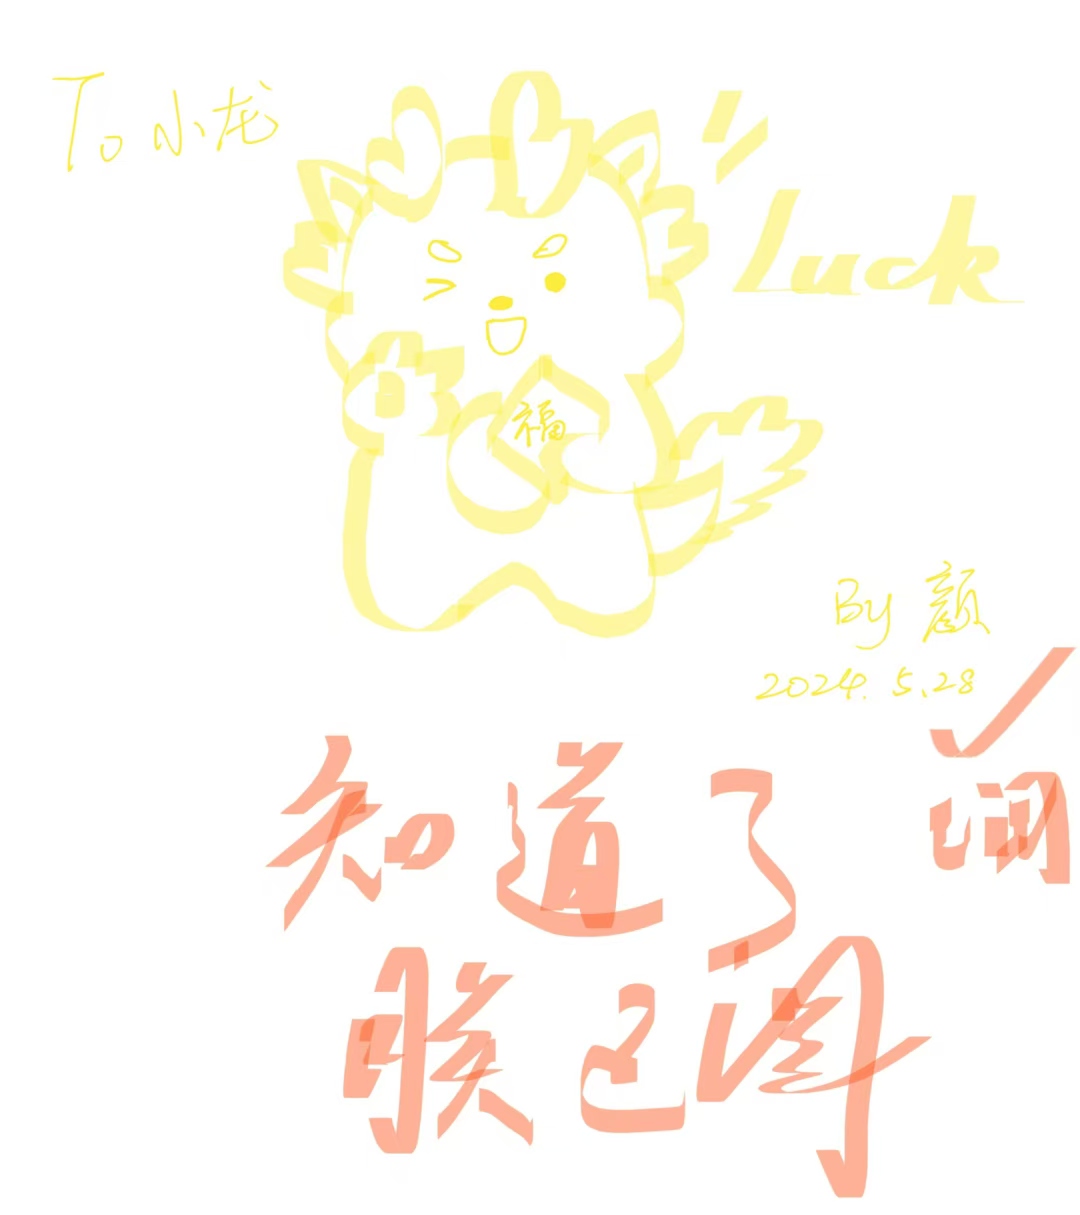 To 小龙
Luck
福
By 颜
2024.5.28
知道了
朕已阅